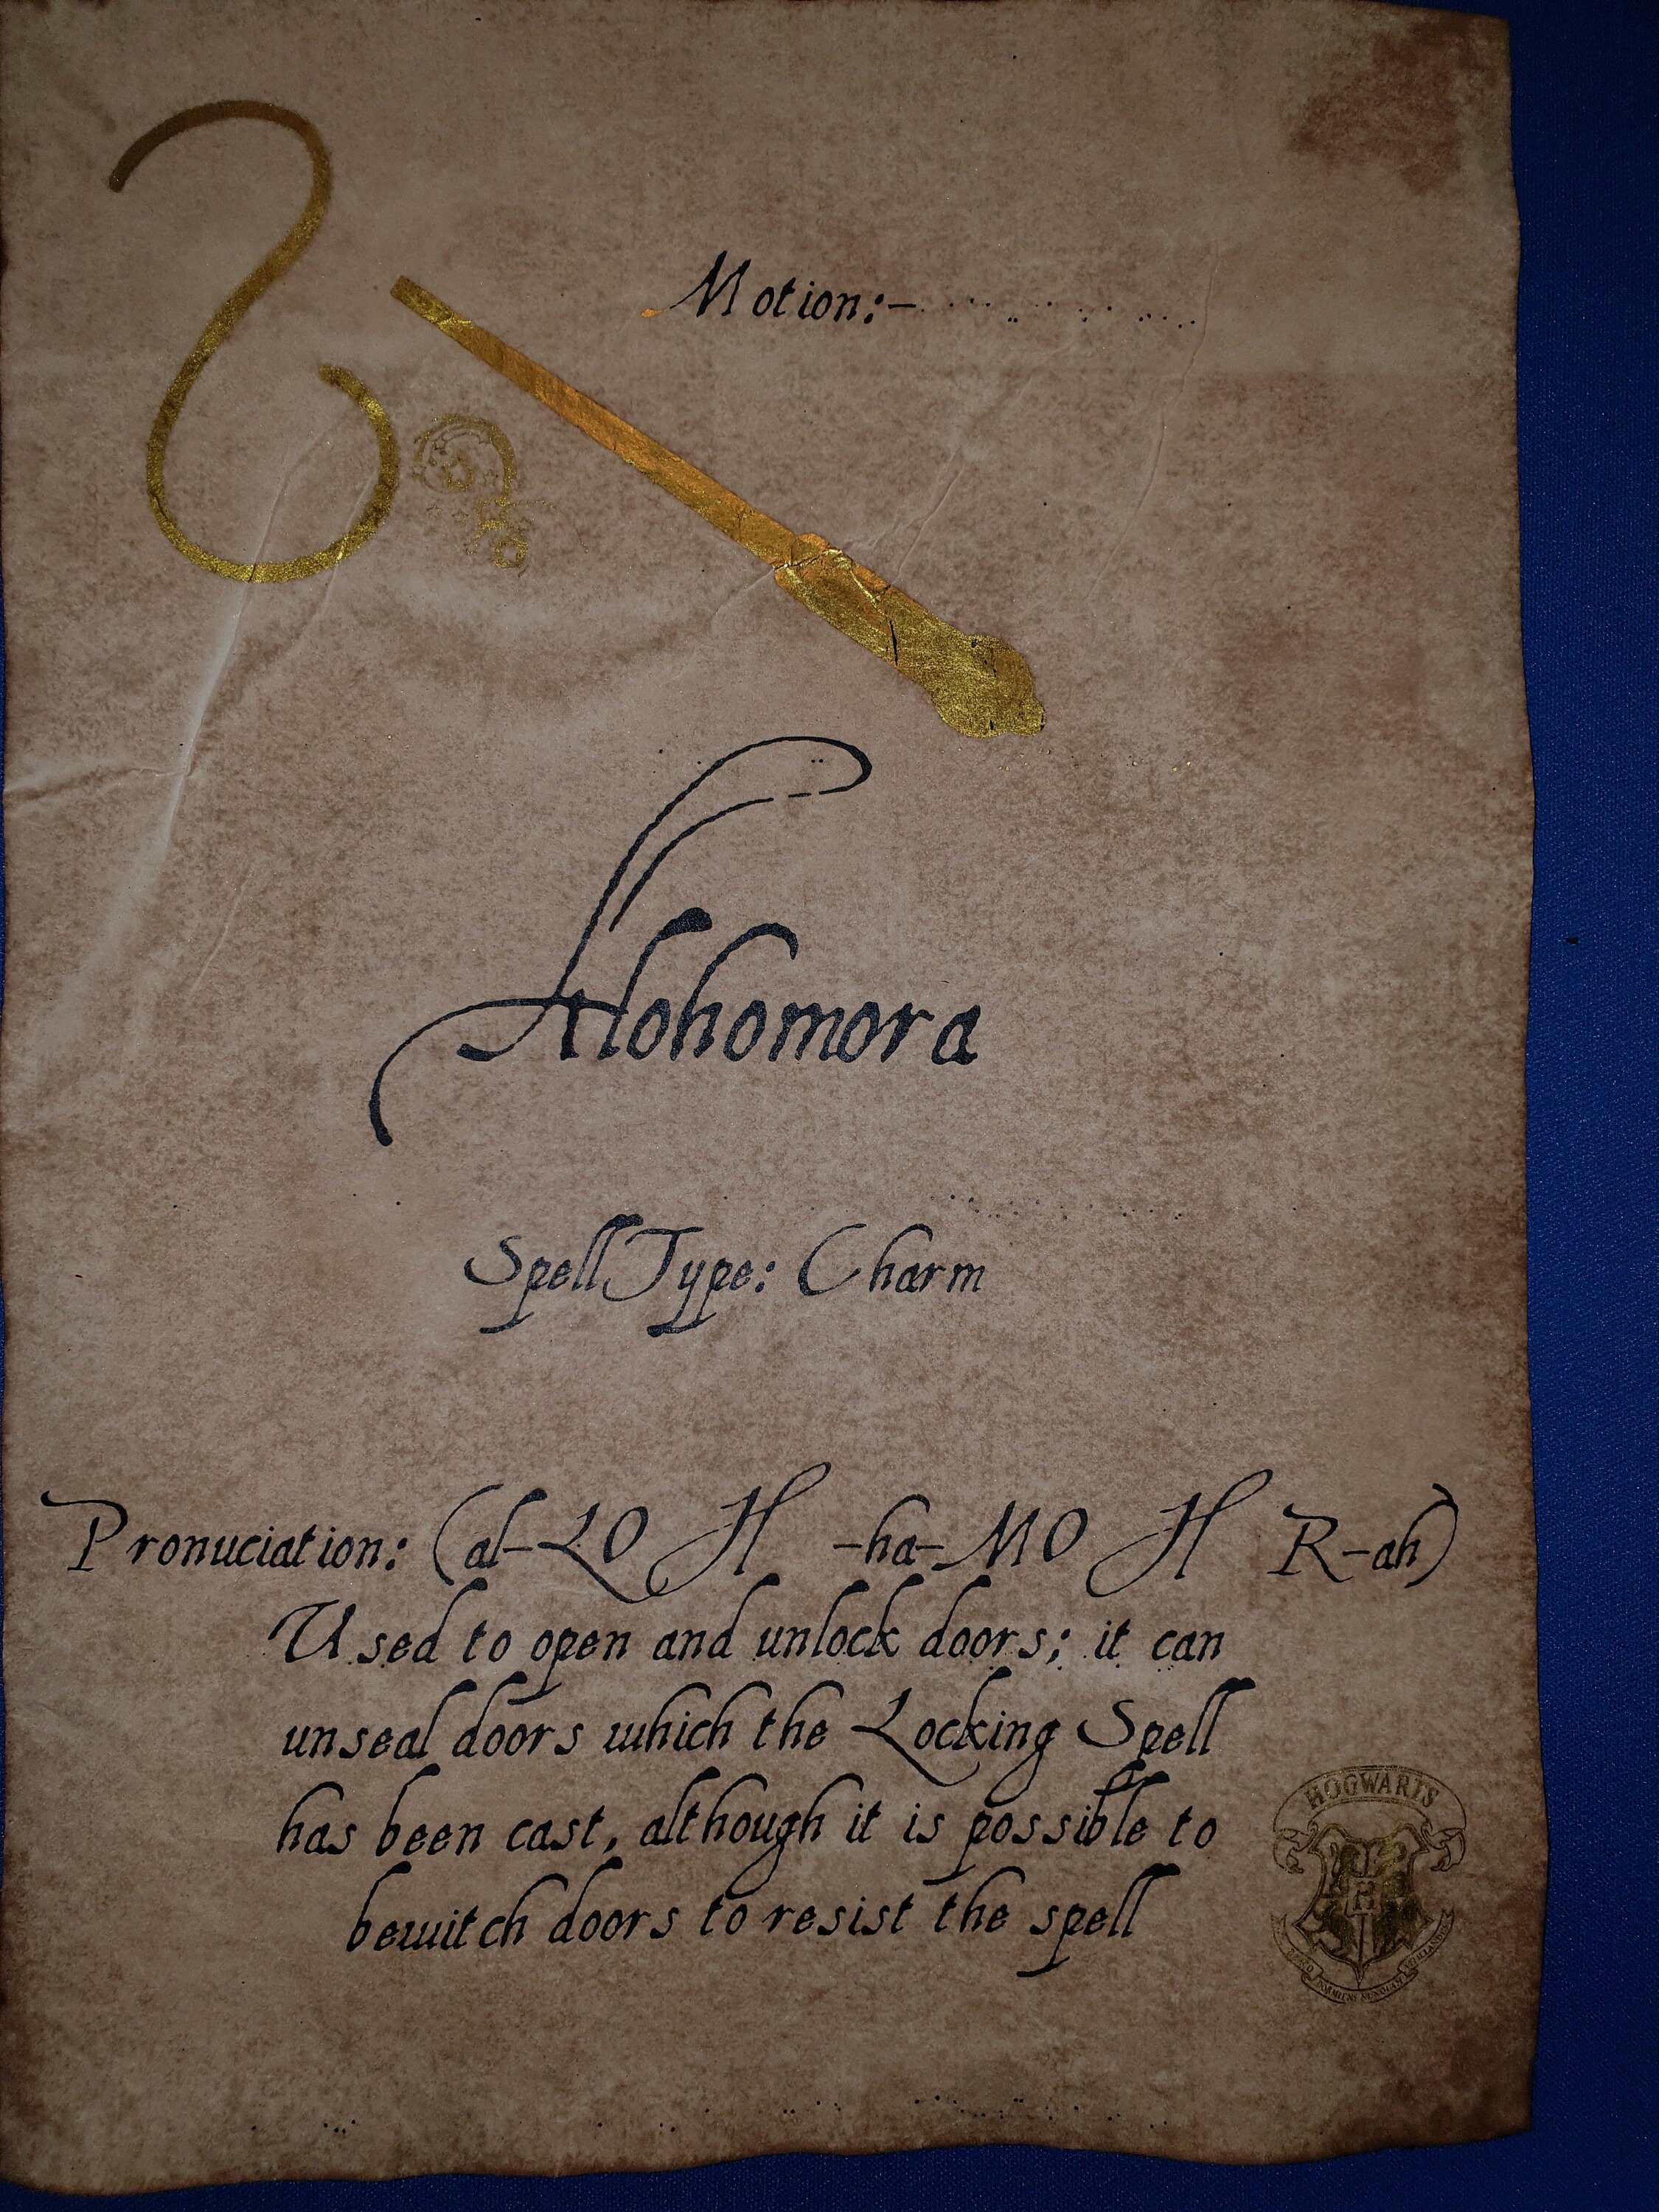 Motion:-
Alohomora
Spell Type: Charm
Pronuciation: (al-LOH-ha-MOHR-ah)
Used to open and unlock doors; it can
unseal doors which the Locking Spell
has been cast, although it is possible to
bewitch doors to resist the spell
HOGWARTS
H